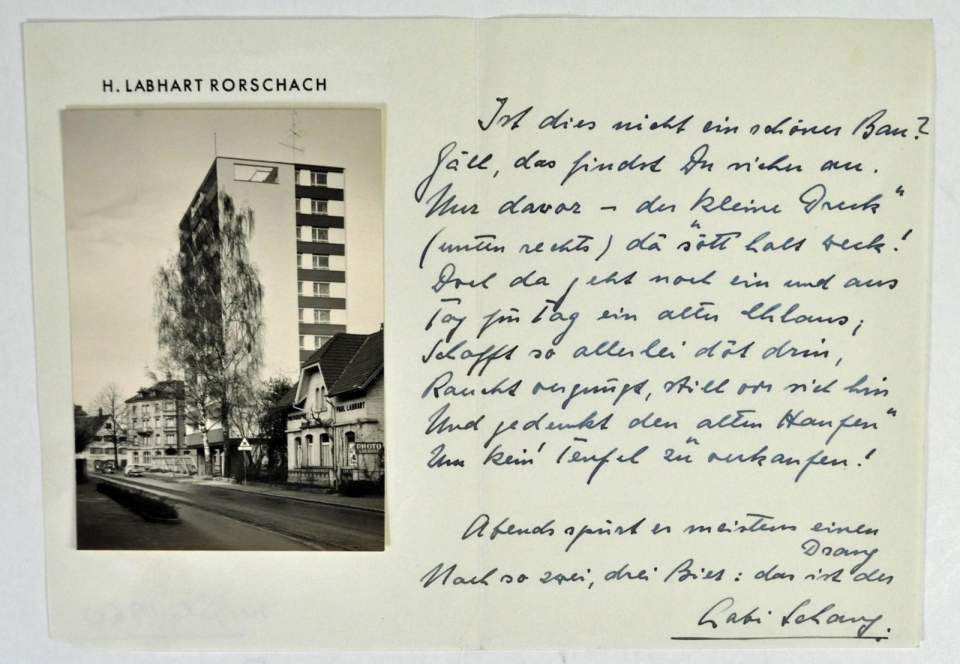 H. LABHART RORSCHACH
PAUL LABHART
PHOTO
Ist dies nicht ein schöner Bau?
Gäll, das findst Du sicher au.
Nur davor – der "kleine Dreck"
(unten rechts) dä sött halt weck!
Doch da geht noch ein und aus
Tag für Tag ein alter Chlaus;
Schafft so allerlei döt drin,
Raucht vergnügt, still vor sich hin
Und gedenkt den "alten Haufen"
Um kein Teufel zu verkaufen!
Abends spürt er meistens einen
Drang
Nach so zwei, drei Bier: das ist der